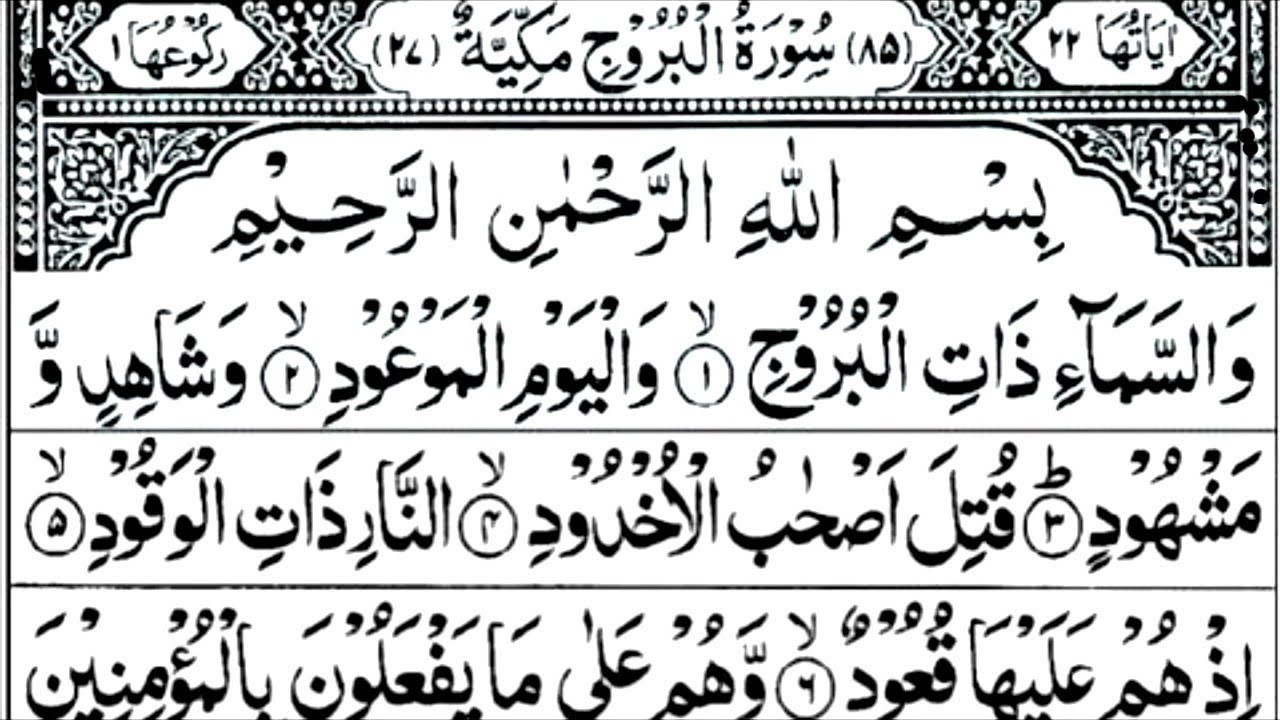 اٰيَاتُهَا ٢٢ (٨٥) سُوْرَةُ الْبُرُوْجِ مَكِّيَّةٌ (٢٧) رُكُوْعُهَا ١
بِسْمِ اللّٰهِ الرَّحْمٰنِ الرَّحِيْمِ
وَالسَّمَآءِ ذَاتِ الْبُرُوْجِ ۙ﴿۱﴾ وَالْيَوْمِ الْمَوْعُوْدِ ۙ﴿۲﴾ وَشَاهِدٍ وَّ
مَشْهُوْدٍ ؕ﴿۳﴾ قُتِلَ اَصْحٰبُ الْاُخْدُوْدِ ۙ﴿۴﴾ النَّارِ ذَاتِ الْوَقُوْدِ ۙ﴿۵﴾
اِذْ هُمْ عَلَيْهَا قُعُوْدٌ ۙ﴿۶﴾ وَّهُمْ عَلٰى مَا يَفْعَلُوْنَ بِالْمُؤْمِنِيْنَ